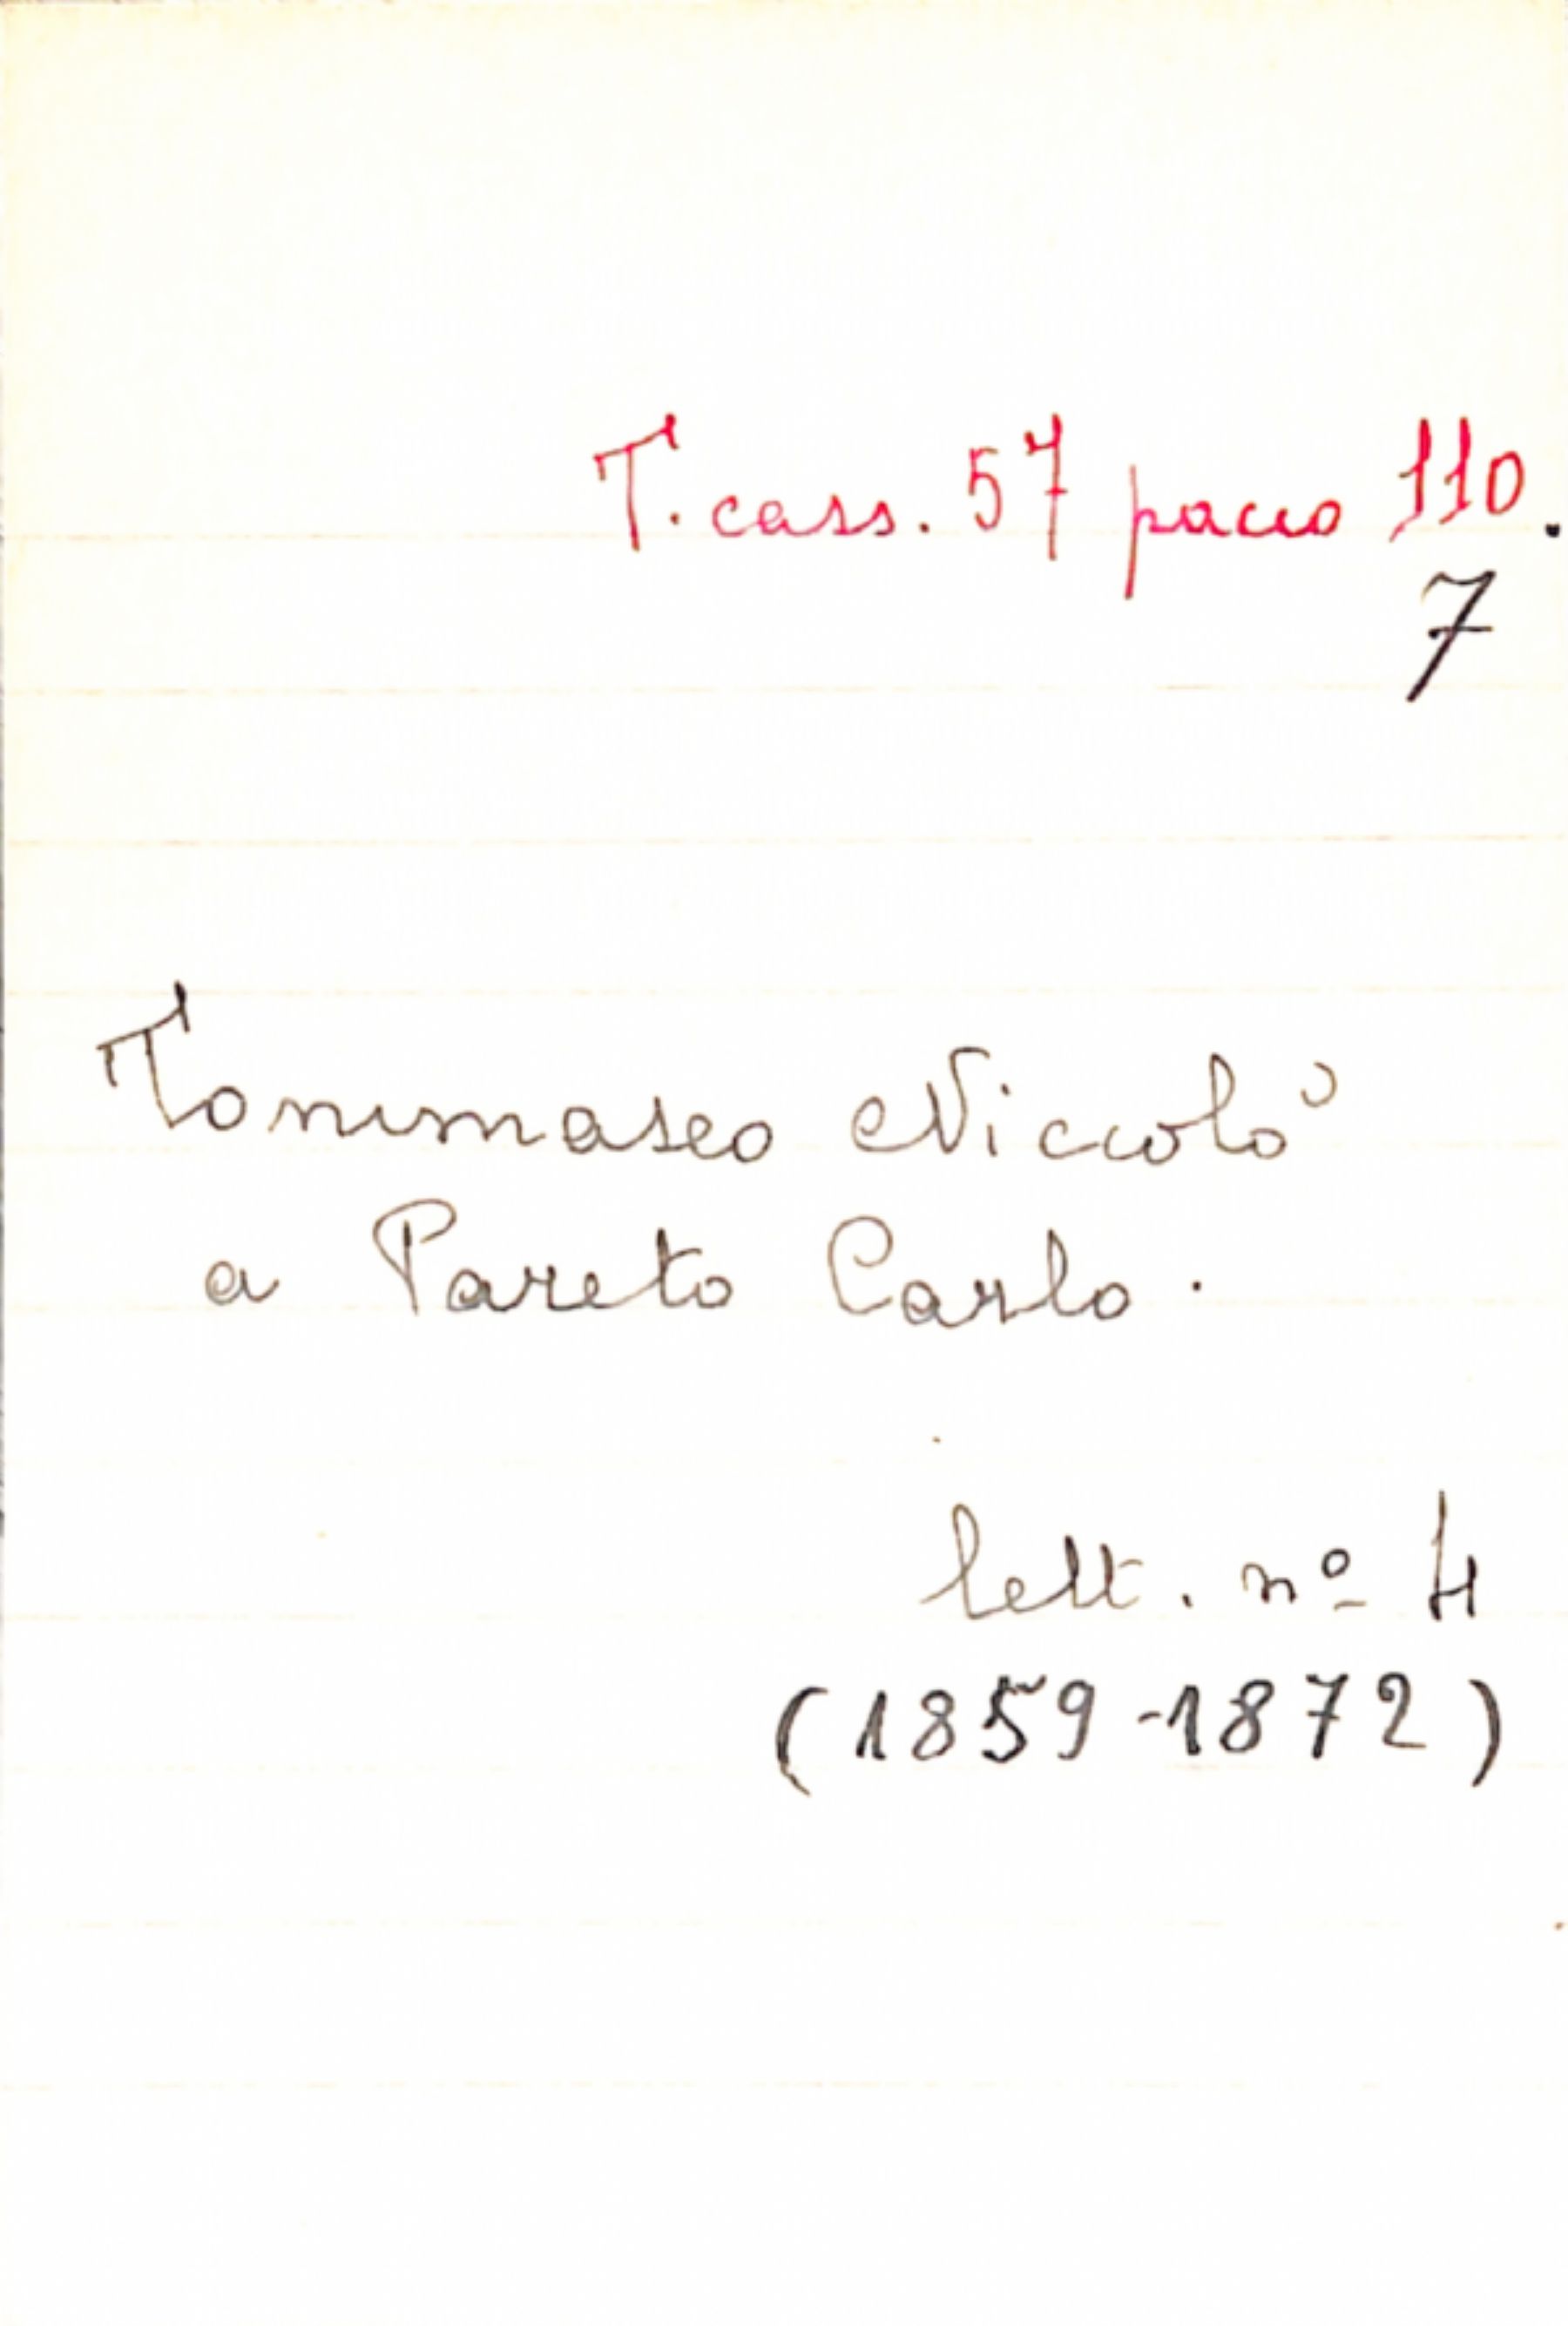 T. cass. 57 pacco 110.
7
Tommaseo Niccolò
a Pareto Carlo.
lett. nº 4
(1859-1872)